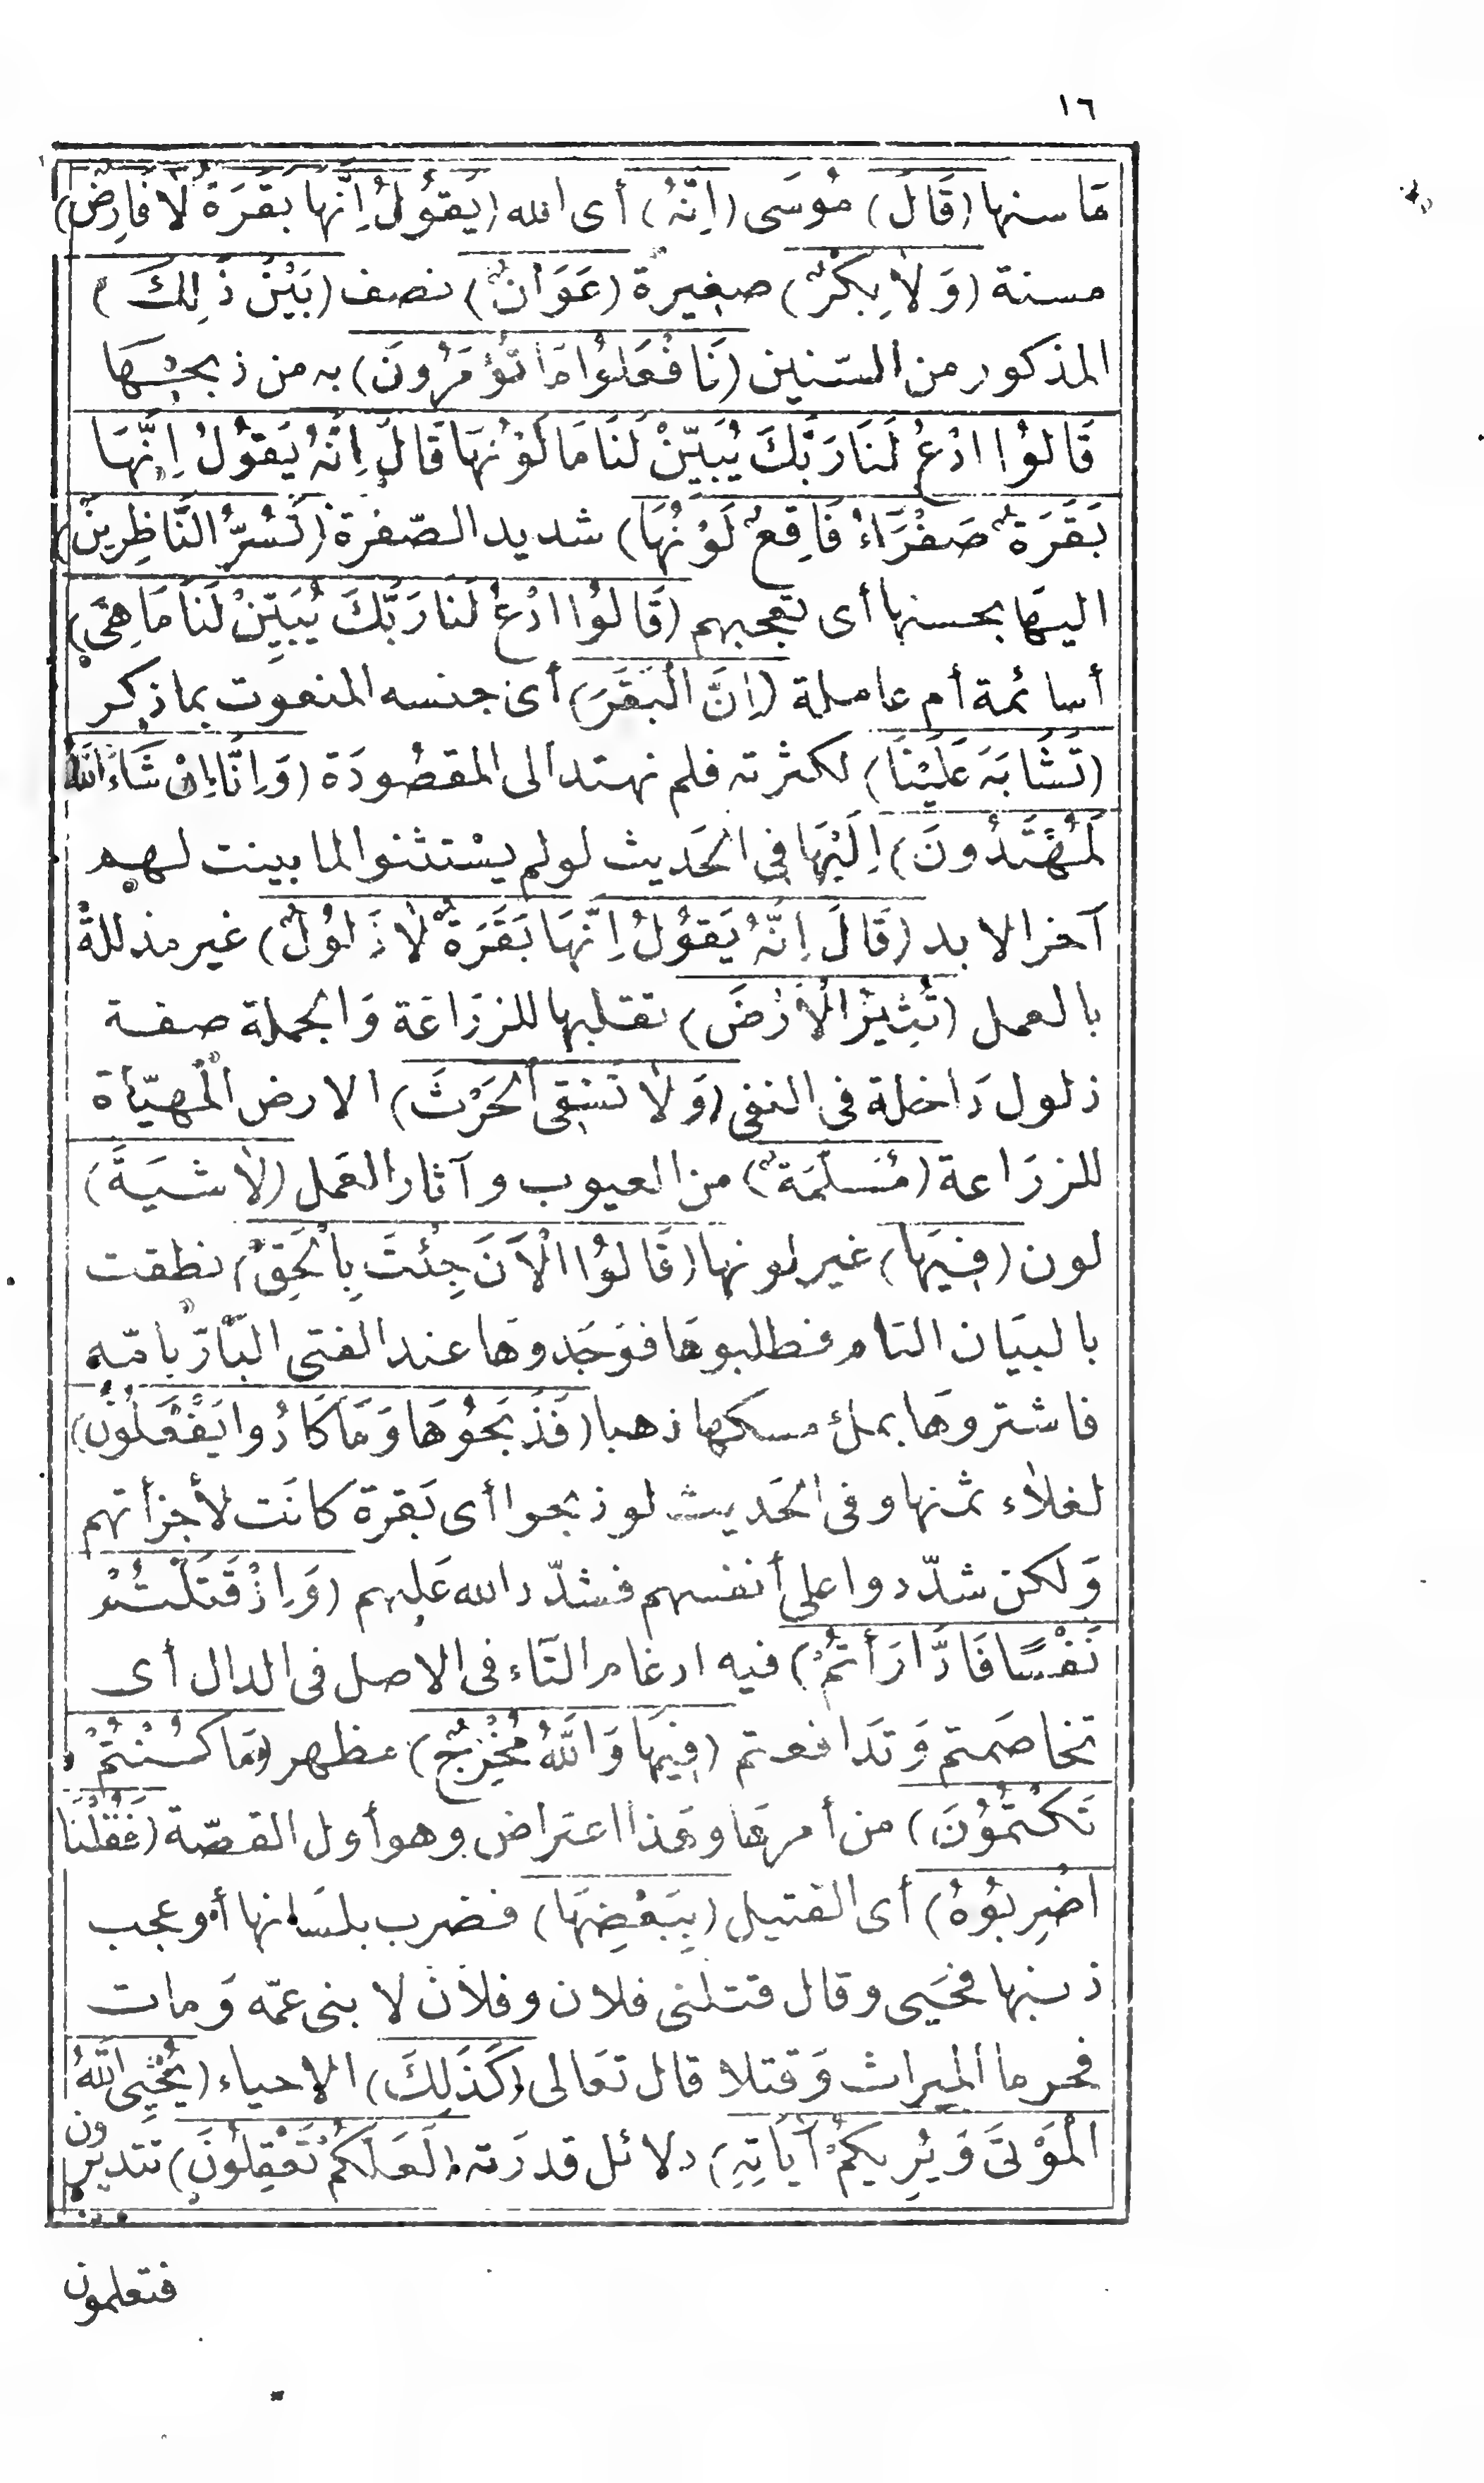 ١٦
مَا سنها (قَالَ) مُوسَى (اِنَّهُ) أى الله (يَقوُلُ اِنَّها بَقَرَةٌ لَا فَارِضٌ)
مسنة (وَلَا بِكْرٌ) صغيرة (عَوَانٌ) نصف (بَيْنَ ذَلِكَ)
المذكور من السّنين (فَافْعَلوُا مَا تُؤْمَرُونَ) به من ذبحهَا
قَالوُا ادْعُ لَنَا رَبَّكَ يُبَيِّنْ لَنَا مَا لَوْنُهَا قَالَ اِنَّهُ يَقوُلُ اِنَّهَا
بَقَرَةٌ صَفْرَاءُ فَاقِعٌ لَوْنُهَا) شديد الصّفرة (تَسُرُّ النَّاظِرِينَ)
اليهَا بحسنها أى تعجبهم (قَالوُا ادْعُ لَنَا رَبَّكَ يُبَيِّنْ لَنَا مَا هِىَ)
أسائمة أم عاملة (اِنَّ الْبَقَرَ) أى جنسه المنعوت بما ذكر
(تَشَابَهَ عَلَيْنَا) لكثرته فلم نهتد الى المقصُودَة (وَاِنَّا اِنْ شَاءَ اللهُ
لَمُهْتَدُونَ) اِلَيْهَا فى الحَديث لو لم يسْتثنوا لما بينت لهم
آخر الابد (قَالَ اِنَّهُ يَقوُلُ اِنَّهَا بَقَرَةٌ لَا ذَلوُلٌ) غير مذللة
بالعمل (تُثِيرُ الْاَرْضَ) تقلبها للزرَاعَة وَالجملة صفة
ذلول دَاخلة فى النفى (وَلَا تَسْقِى الْحَرْثَ) الارض المهيّأة
للزرَاعة (مُسَلَّمَةٌ) من العيوب وآثار العَمل (لَا شِيَةَ)
لون (فِيهَا) غير لونها (قَالوُا الْآنَ جِئْتَ بِالْحَقِّ) نطقت
بالبيَان التام فطلبوهَا فوَجَدوهَا عند الفتى البَارّ بامّه
فاشتروهَا بملئ مسكها ذهبا (فَذَبَحوُهَا وَمَا كَادُوا يَفْعَلُونَ)
لغلاء ثمنها وفى الحَديث لو ذبحوا أى بَقرة كانَت لأجزأتهم
وَلكن شدّدوا على أنفسهم فشدّد الله عَليهم (وَاِذْ قَتَلْتُمْ
نَفْسًا فَادَّارَأْتُمْ) فيه ادغام التّاء فى الاصل فى الدال أى
تخاصَمتم وَتدَافعتم (فِيهَا وَاللّٰهُ مُخْرِجٌ) مظهر (مَا كُنْتُمْ
تَكْتُمُونَ) من أمرهَا وهَذا اعترَاض وهو أول القصّة (فَقُلْنَا
اضْرِبوُهُ) أى القتيل (بِبَعْضِهَا) فضرب بلسَانها أو عجب
ذنبها فحَيى وقال قتلنى فلان وفلان لابنى عمّه وَمات
فحرما الميراث وَقتلا قال تعَالى (كَذَلِكَ) الاحياء (يُحْيِى اللّٰهُ
الْمَوْتَى وَيُرِيكُمْ آيَاتِهِ) دلائل قدرَته (لَعَلَّكُمْ تَعْقِلُونَ) تتدبرون
فتعلمون